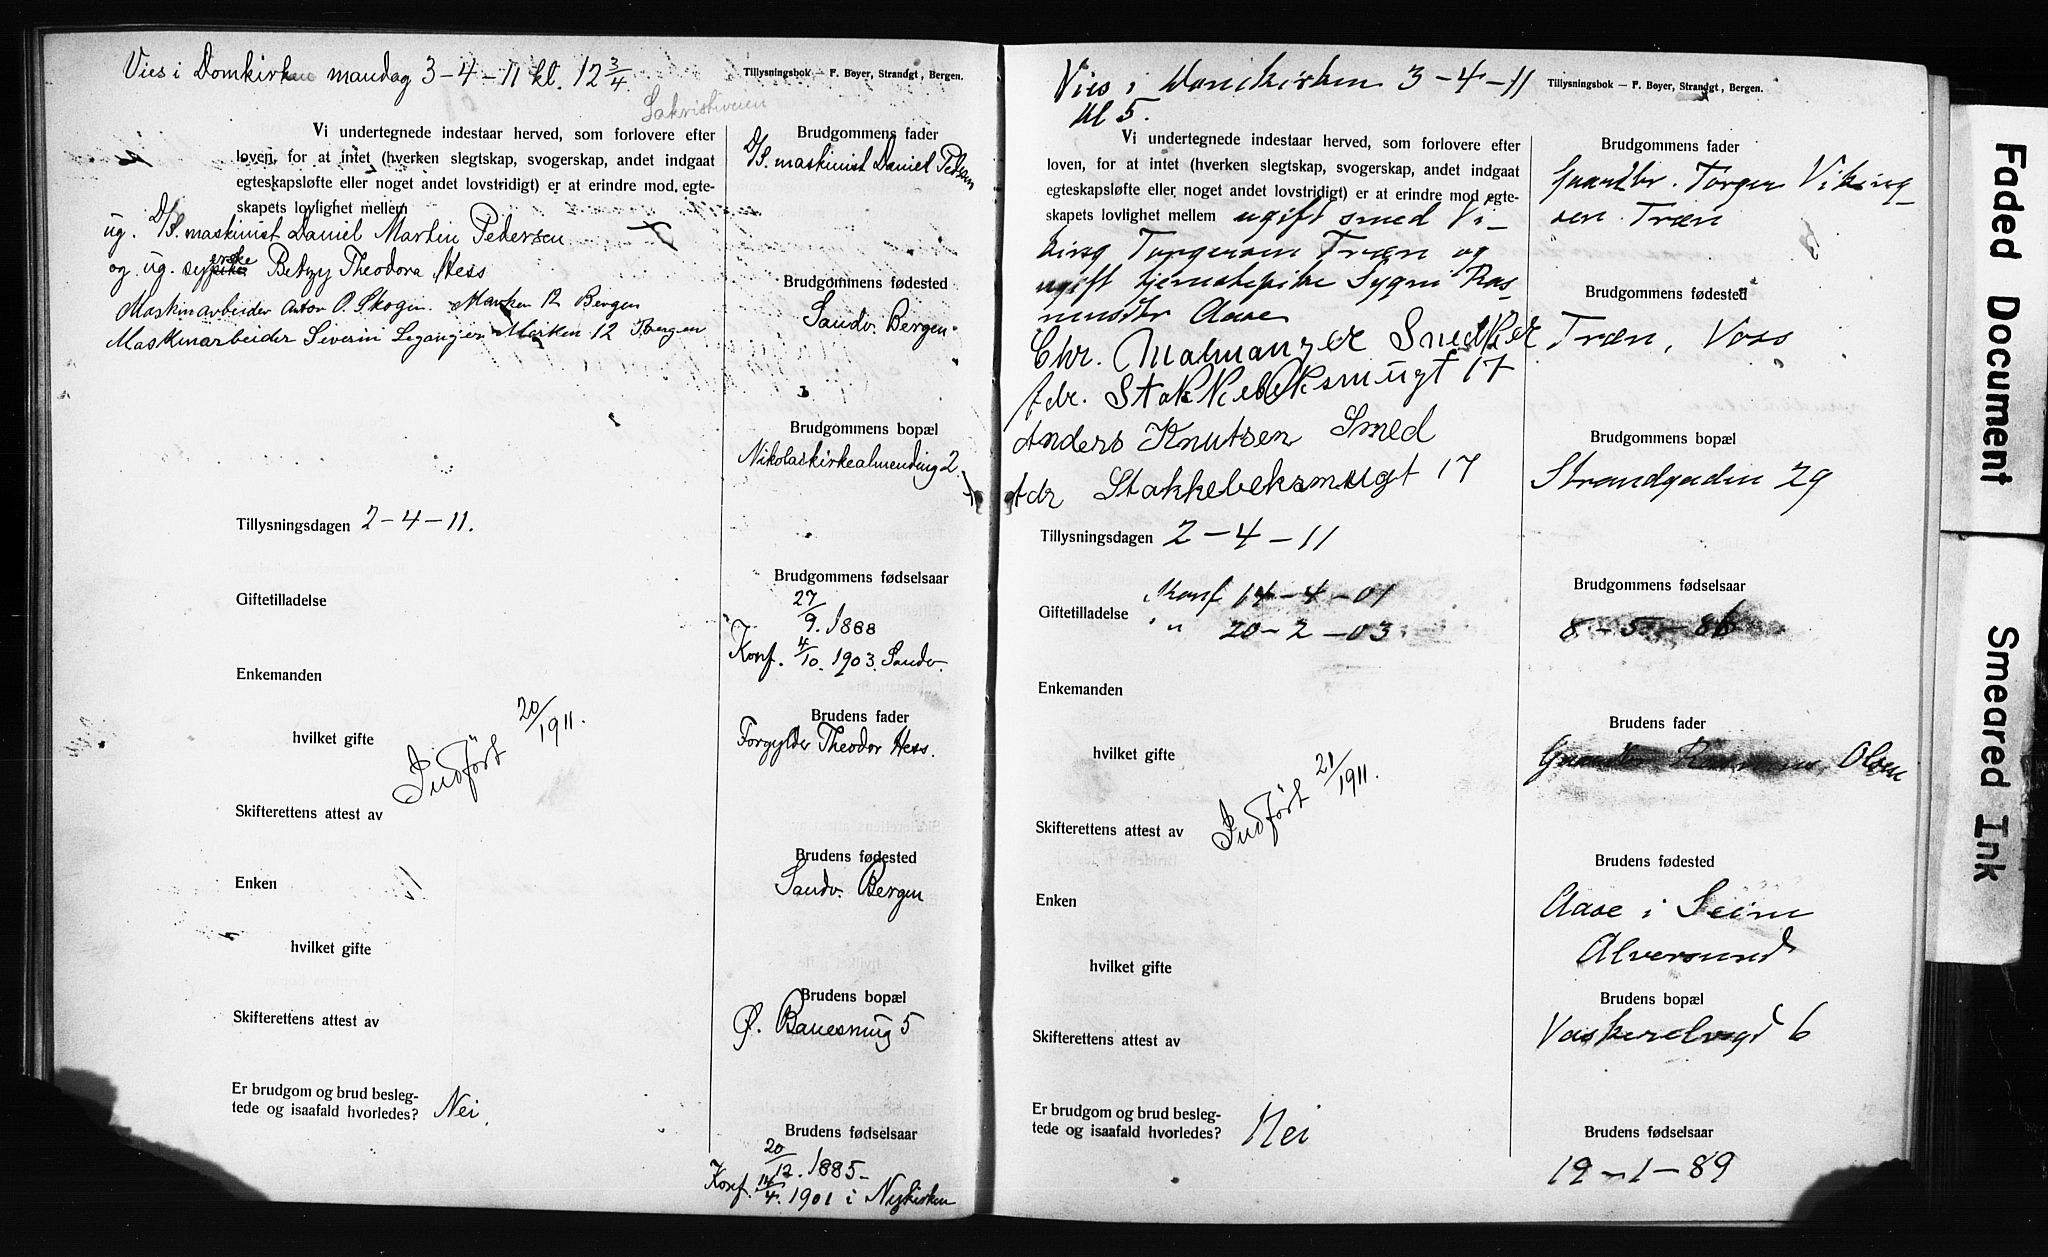 Vies i Domkirken mandag 3-4-11 kl. 12 3/4
Tillysningsbok — F. Beyer, Strandgt, Bergen.
Sakristiveien
Vi undertegnede indestaar herved, som forlovere efter
loven, for at intet (hverken slegtskap, svogerskap, andet indgaat
egteskapsløfte eller noget andet lovstridigt) er at erindre mod, egte-
skapets lovlighet mellem
ug. D/S. maskinist Daniel Martin Pedersen
og ug. syerske Betzy Theodora Hess
Maskinarbeider Anton O. Skogen Marken 12 Bergen
Maskinarbeider Severin Leganger Marken 12 Bergen
Tillysningsdagen 2-4-11.
Giftetilladelse
Enkemanden
hvilket gifte
Indført 20/1911.
Skifterettens attest av
Enken
hvilket gifte
Skifterettens attest av
Er brudgom og brud besleg-
tede og isaafald hvorledes? Nei.
Brudgommens fader
D/S. maskinist Daniel Pedersen
Brudgommens fødested
Sandv. Bergen.
Brudgommens bopæl
Nikolaikirkealmending 2.
Brudgommens fødselsaar
27/9. 1888
Konf. 4/10. 1903. Sandv.
Brudens fader
Forgylder Theodor Hess.
Brudens fødested
Sandv. Bergen
Brudens bopæl
Ø. Banesmug 5
Brudens fødselsaar
20/12. 1885-
Konf. 14/4. 1901 i Nykirken
Vies i Domkirken 3-4-11
Kl 5.
Tillysningsbok — F. Beyer, Strandgt, Bergen.
Vi undertegnede indestaar herved, som forlovere efter
loven, for at intet (hverken slegtskap, svogerskap, andet indgaat
egteskapsløfte eller noget andet lovstridigt) er at erindre mod egte-
skapets lovlighet mellem ugift smed Vi-
king Torgersen Træn og
ugift tjenestepike Sygni Ras-
musdtr Aase
Chr. Malmanger Snedker
Adr. Stakkebeksmugt 17
Anders Knutsen Smed
Adr Stakkebeksmugt 17
Tillysningsdagen 2-4-11
Giftetilladelse Konf 14-4-01
" 20-2-03
Enkemanden
hvilket gifte
Indført 21/1911.
Skifterettens attest av
Enken
hvilket gifte
Skifterettens attest av
Er brudgom og brud besleg-
tede og isaafald hvorledes? Nei
Brudgommens fader
Gaardbr. Torger Viking-
sen Træn
Brudgommens fødested
Træn, Voss
Brudgommens bopæl
Strandgaden 29
Brudgommens fødselsaar
8-5-86
Brudens fader
Gaardbr Rasmus Olsen
Brudens fødested
Aase i Seim
Alversund
Brudens bopæl
Vaskerelvgd 6
Brudens fødselsaar
19-1-89
Faded Document
Smeared Ink